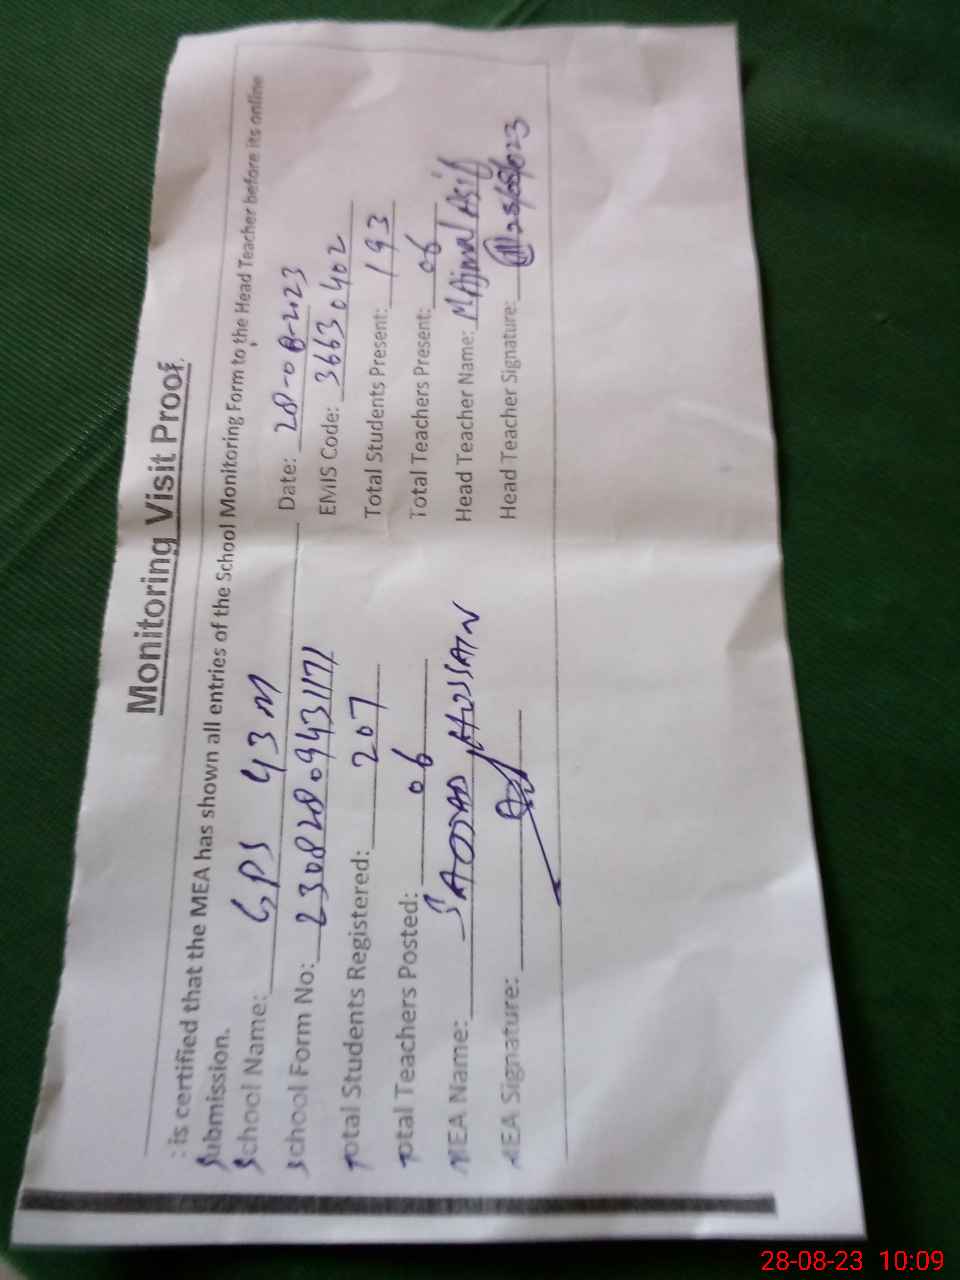 Monitoring Visit Proof.
: is certified that the MEA has shown all entries of the School Monitoring Form to the Head Teacher before its online
Submission.
School Name: GPS 43 M Date: 28-08-2023
School Form No: 23082809431171 EMIS Code: 36630402
Total Students Registered: 207 Total Students Present: 193
Total Teachers Posted: 06 Total Teachers Present: 06
MEA Name: SAJJAD HUSSAIN Head Teacher Name: M Ajmal Asif
MEA Signature: Head Teacher Signature:
28-08-23 10:09